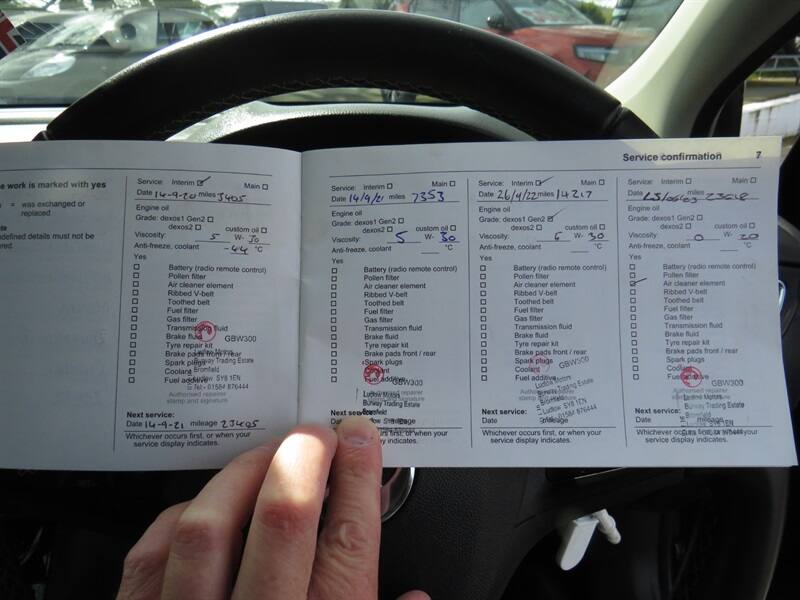 e work is marked with yes
= was exchanged or
replaced
defined details must not be
ered.
Service: Interim Main
Date 14-9-20 miles 3405
Engine oil
Grade: dexos1 Gen2
dexos2 custom oil
Viscosity: 5 W- 30
Anti-freeze, coolant -44 °C
Yes
Battery (radio remote control)
Pollen filter
Air cleaner element
Ribbed V-belt
Toothed belt
Fuel filter
Gas filter
Transmission fluid
Brake fluid
Tyre repair kit
Brake pads front / rear
Spark plugs
Coolant
Fuel additive
GBW300
Ludlow Motors
Burway Trading Estate
Bromfield
Ludlow SY8 1EN
Tel - 01584 876444
Authorised repairer
stamp and signature
Next service:
Date 14-9-21 mileage 23405
Whichever occurs first, or when your
service display indicates.
Service: Interim Main
Date 14/9/21 miles 7353
Engine oil
Grade: dexos1 Gen2
dexos2 custom oil
Viscosity: 5 W- 30
Anti-freeze, coolant °C
Yes
Battery (radio remote control)
Pollen filter
Air cleaner element
Ribbed V-belt
Toothed belt
Fuel filter
Gas filter
Transmission fluid
Brake fluid
Tyre repair kit
Brake pads front / rear
Spark plugs
Coolant
Fuel additive
GBW300
Authorised repairer
stamp and signature
Ludlow Motors
Burway Trading Estate
Next service:
mileage
rs first, or when your
service display indicates.
Service confirmation 7
Service: Interim Main
Date 26/4/22 miles 14217
Engine oil
Grade: dexos1 Gen2
dexos2 custom oil
Viscosity: W- 30
Anti-freeze, coolant °C
Yes
Battery (radio remote control)
Pollen filter
Air cleaner element
Ribbed V-belt
Toothed belt
Fuel filter
Gas filter
Transmission fluid
Brake fluid
Tyre repair kit
Brake pads front / rear
Spark plugs
Coolant
Fuel additive
GBW300
Ludlow Motors
Burway Trading Estate
Bromfield
Ludlow SY8 1EN
Tel: 01584 876444
Authorised repairer
stamp and signature
Next service:
Date mileage
Whichever occurs first, or when your
service display indicates.
Service: Interim Main
Date miles
Engine oil
Grade: dexos1 Gen2
dexos2 custom oil
Viscosity: 0 W- 20
Anti-freeze, coolant °C
Yes
Battery (radio remote control)
Pollen filter
Air cleaner element
Ribbed V-belt
Toothed belt
Fuel filter
Gas filter
Transmission fluid
Brake fluid
Tyre repair kit
Brake pads front / rear
Spark plugs
Coolant
Fuel additive
GBW300
Authorised repairer
stamp and signature
Ludlow Motors
Burway Trading Estate
Bromfield
Ludlow SY8 1EN
Next service:
Date mileage
Whichever occurs first, or when your
service display indicates.